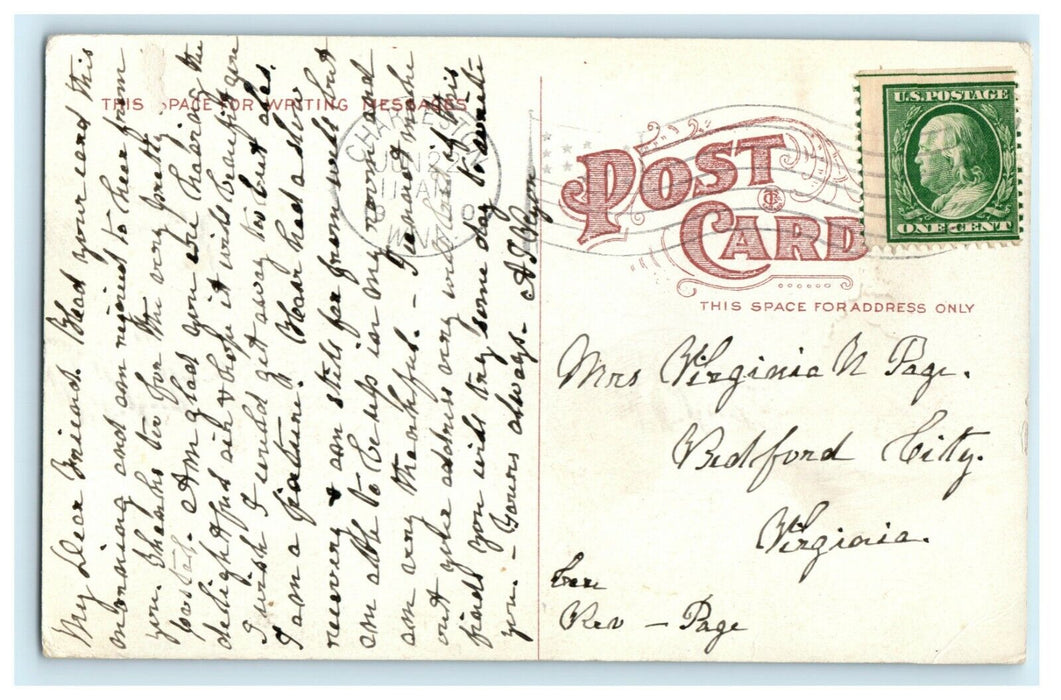 THIS SPACE FOR WRITING MESSAGES
My Dear Friend. Had your card this
morning and am rejoiced to hear from
you. Thanks too for the very pretty
postal. Am glad you are having the
delightful air & hope it will benefit you
I wish I could get away too but alas.
I am a fixture. Have had a slow
recovery & am still far from well but
am able to be up in my room and
am very thankful. - I cannot make
out your address very well but if this
finds you will try some day to write
you. - Yours always.
CHARLESTON
JUN 22
11 AM
W.VA.
POST
CARD
THIS SPACE FOR ADDRESS ONLY
U.S. POSTAGE
ONE CENT
Mrs Virginia N Page.
Bedford City.
Virginia.
Care
Rev - Page